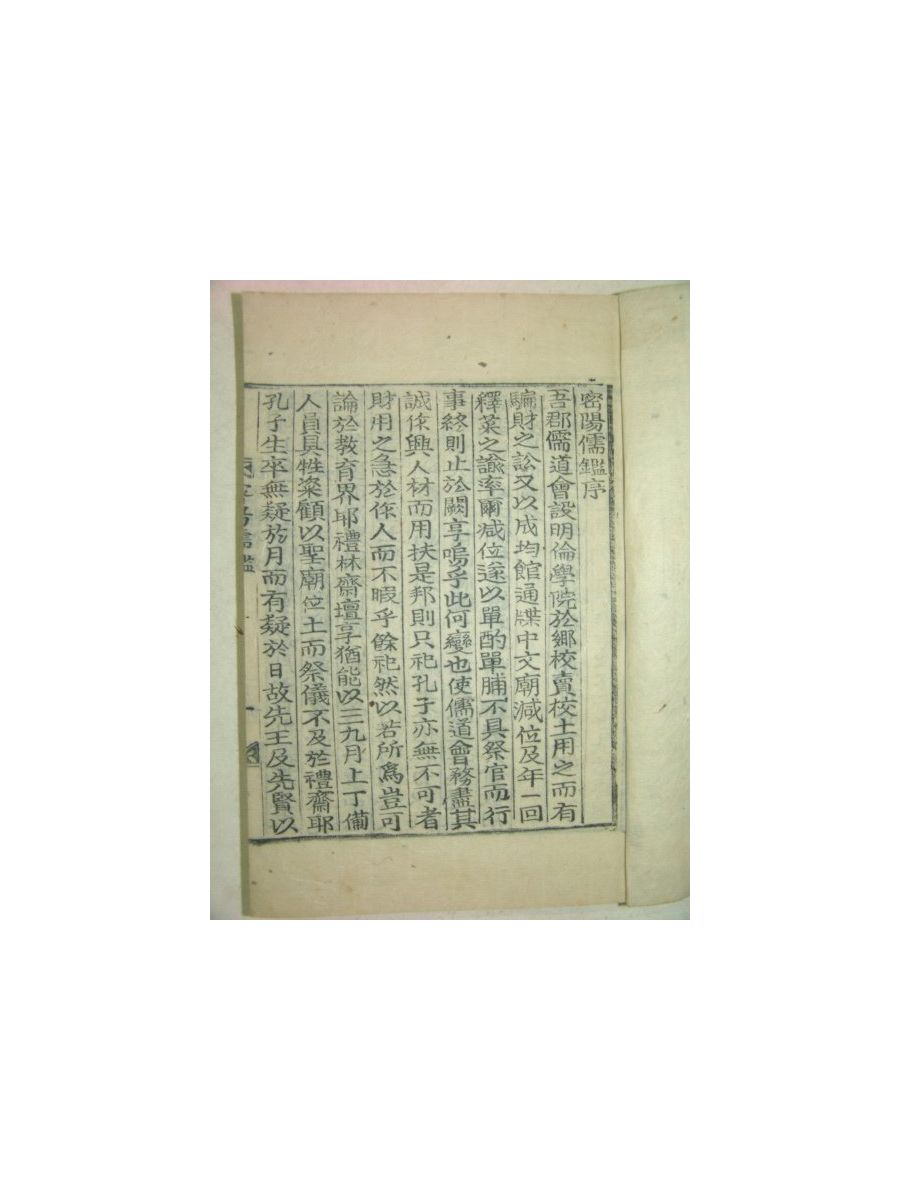 密陽儒鑑序
吾郡儒道會設明倫學院於鄉校賣校土用之而有
騙財之訟又以成均館通牒中文廟減位及年一回
釋菜之諭率爾减位遂以單酌單脯不具祭官而行
事終則止於闕享嗚乎此何變也使儒道會務盡其
誠作興人材而用扶是邦則只祀孔子亦無不可者
財用之急於作人而不暇乎餘祀然以若所爲豈可
論於教育界耶禮林齋壇享猶能以三九月上丁備
人員具牲粢顧以聖廟位土而祭儀不及於禮齋耶
孔子生卒無疑於月而有疑於日故先王及先賢以